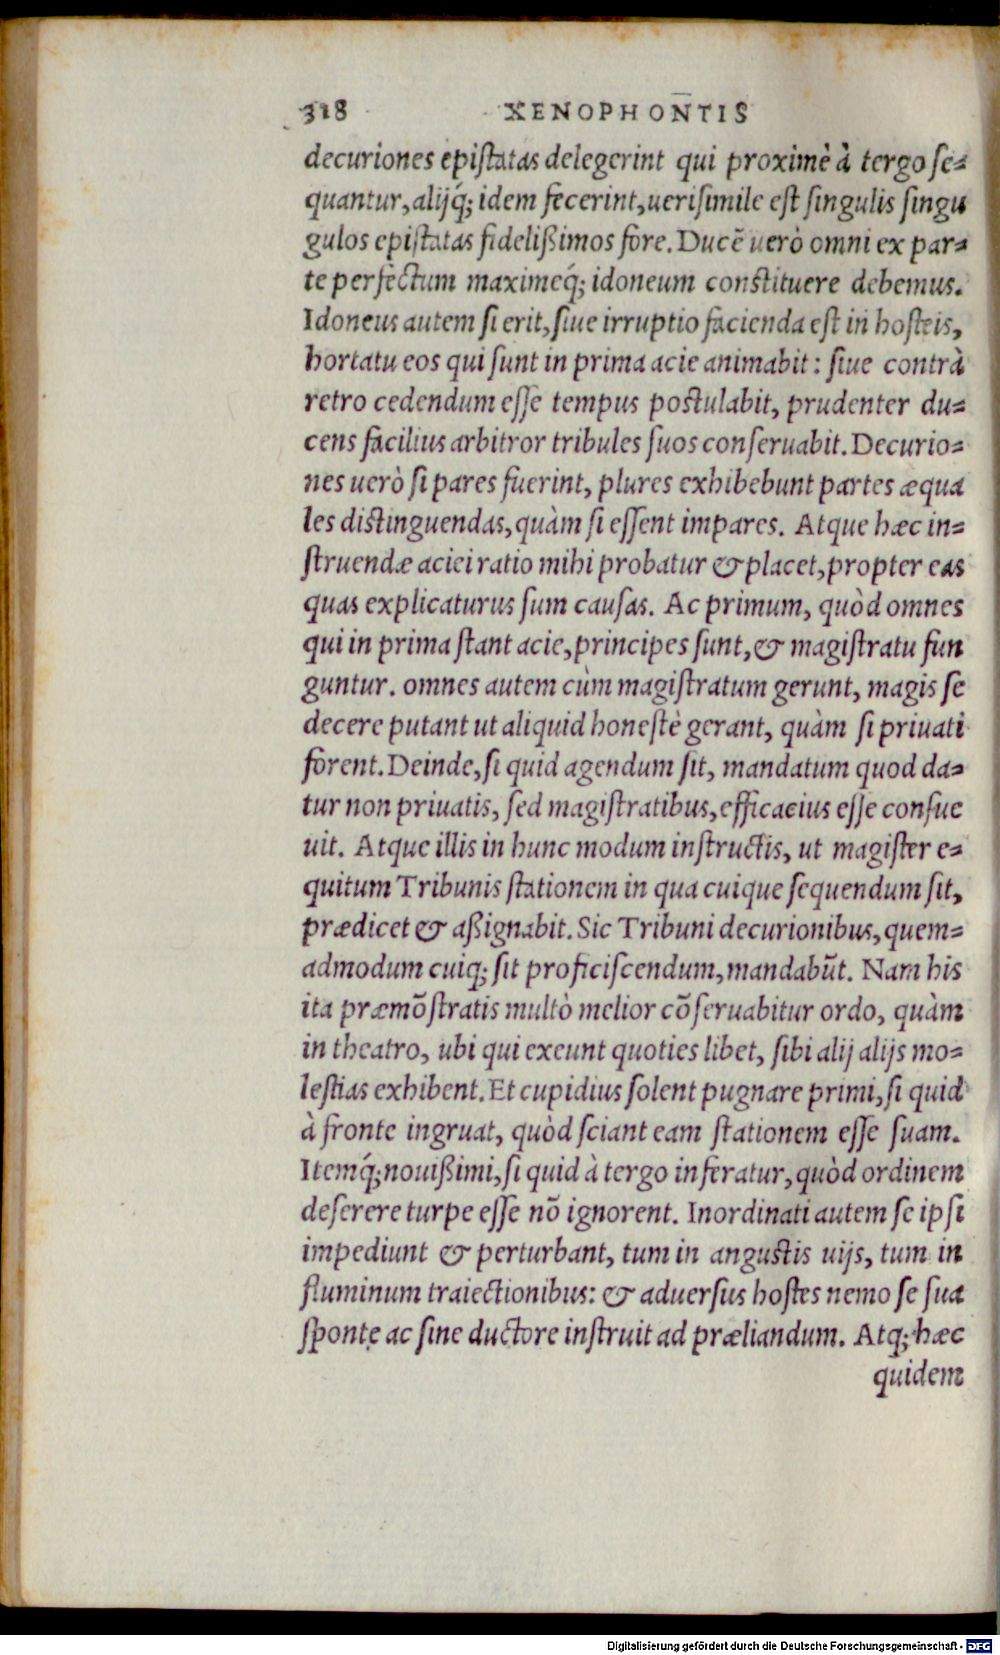 318 XENOPHON̄TIS
decuriones epiſtatas delegerint qui proximè à tergo ſe-
quantur, alijq́; idem fecerint, ueriſimile eſt ſingulis ſingu
gulos epiſtatas fidelißimos fore. Ducẽ uerò omni ex par-
te perfectum maximeq́; idoneum conſtituere debemus.
Idoneus autem ſi erit, ſiue irruptio facienda eſt in hoſteis,
hortatu eos qui ſunt in prima acie animabit: ſiue contrà
retro cedendum eſſe tempus poſtulabit, prudenter du-
cens facilius arbitror tribules ſuos conſeruabit. Decurio-
nes uerò ſi pares fuerint, plures exhibebunt partes æqua
les diſtinguendas, quàm ſi eſſent impares. Atque hæc in-
ſtruendæ aciei ratio mihi probatur & placet, propter eas
quas explicaturus ſum cauſas. Ac primum, quòd omnes
qui in prima ſtant acie, principes ſunt, & magiſtratu fun
guntur. omnes autem cùm magiſtratum gerunt, magis ſe
decere putant ut aliquid honeſtè gerant, quàm ſi priuati
forent. Deinde, ſi quid agendum ſit, mandatum quod da-
tur non priuatis, ſed magiſtratibus, efficacius eſſe conſue
uit. Atque illis in hunc modum inſtructis, ut magiſter e-
quitum Tribunis ſtationem in qua cuique ſequendum ſit,
prædicet & aßignabit. Sic Tribuni decurionibus, quem-
admodum cuiq; ſit proficiſcendum, mandabūt. Nam his
ita præmõſtratis multò melior cõſeruabitur ordo, quàm
in theatro, ubi qui exeunt quoties libet, ſibi alij alijs mo-
leſtias exhibent. Et cupidius ſolent pugnare primi, ſi quid
à fronte ingruat, quòd ſciant eam ſtationem eſſe ſuam.
Itemq́; nouißimi, ſi quid à tergo inferatur, quòd ordinem
deſerere turpe eſſe nõ ignorent. Inordinati autem ſe ipſi
impediunt & perturbant, tum in anguſtis uijs, tum in
fluminum traiectionibus: & aduerſus hoſtes nemo ſe ſua
ſponte ac ſine ductore inſtruit ad præliandum. Atq; hæc
quidem
Digitalisierung gefördert durch die Deutsche Forschungsgemeinschaft - DFG